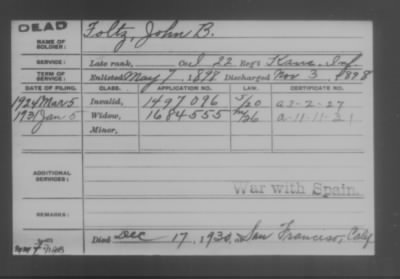 DEAD
NAME OF SOLDIER: Foltz, John B.
SERVICE: Late rank, Co. 22 Reg't Kans. Inf
TERM OF SERVICE: Enlisted May 7, 1898 Discharged Nov 3, 1898
DATE OF FILING. CLASS. APPLICATION NO. LAW. CERTIFICATE NO.
1924 Mar 5 Invalid, 1497096 5/20 a-2-2-27
1931 Jan 5 Widow, 1684555 26 a-11-11-21
Minor,
ADDITIONAL SERVICES:
War with Spain.
REMARKS:
Died Dec 17, 1930, at San Francisco, Calif